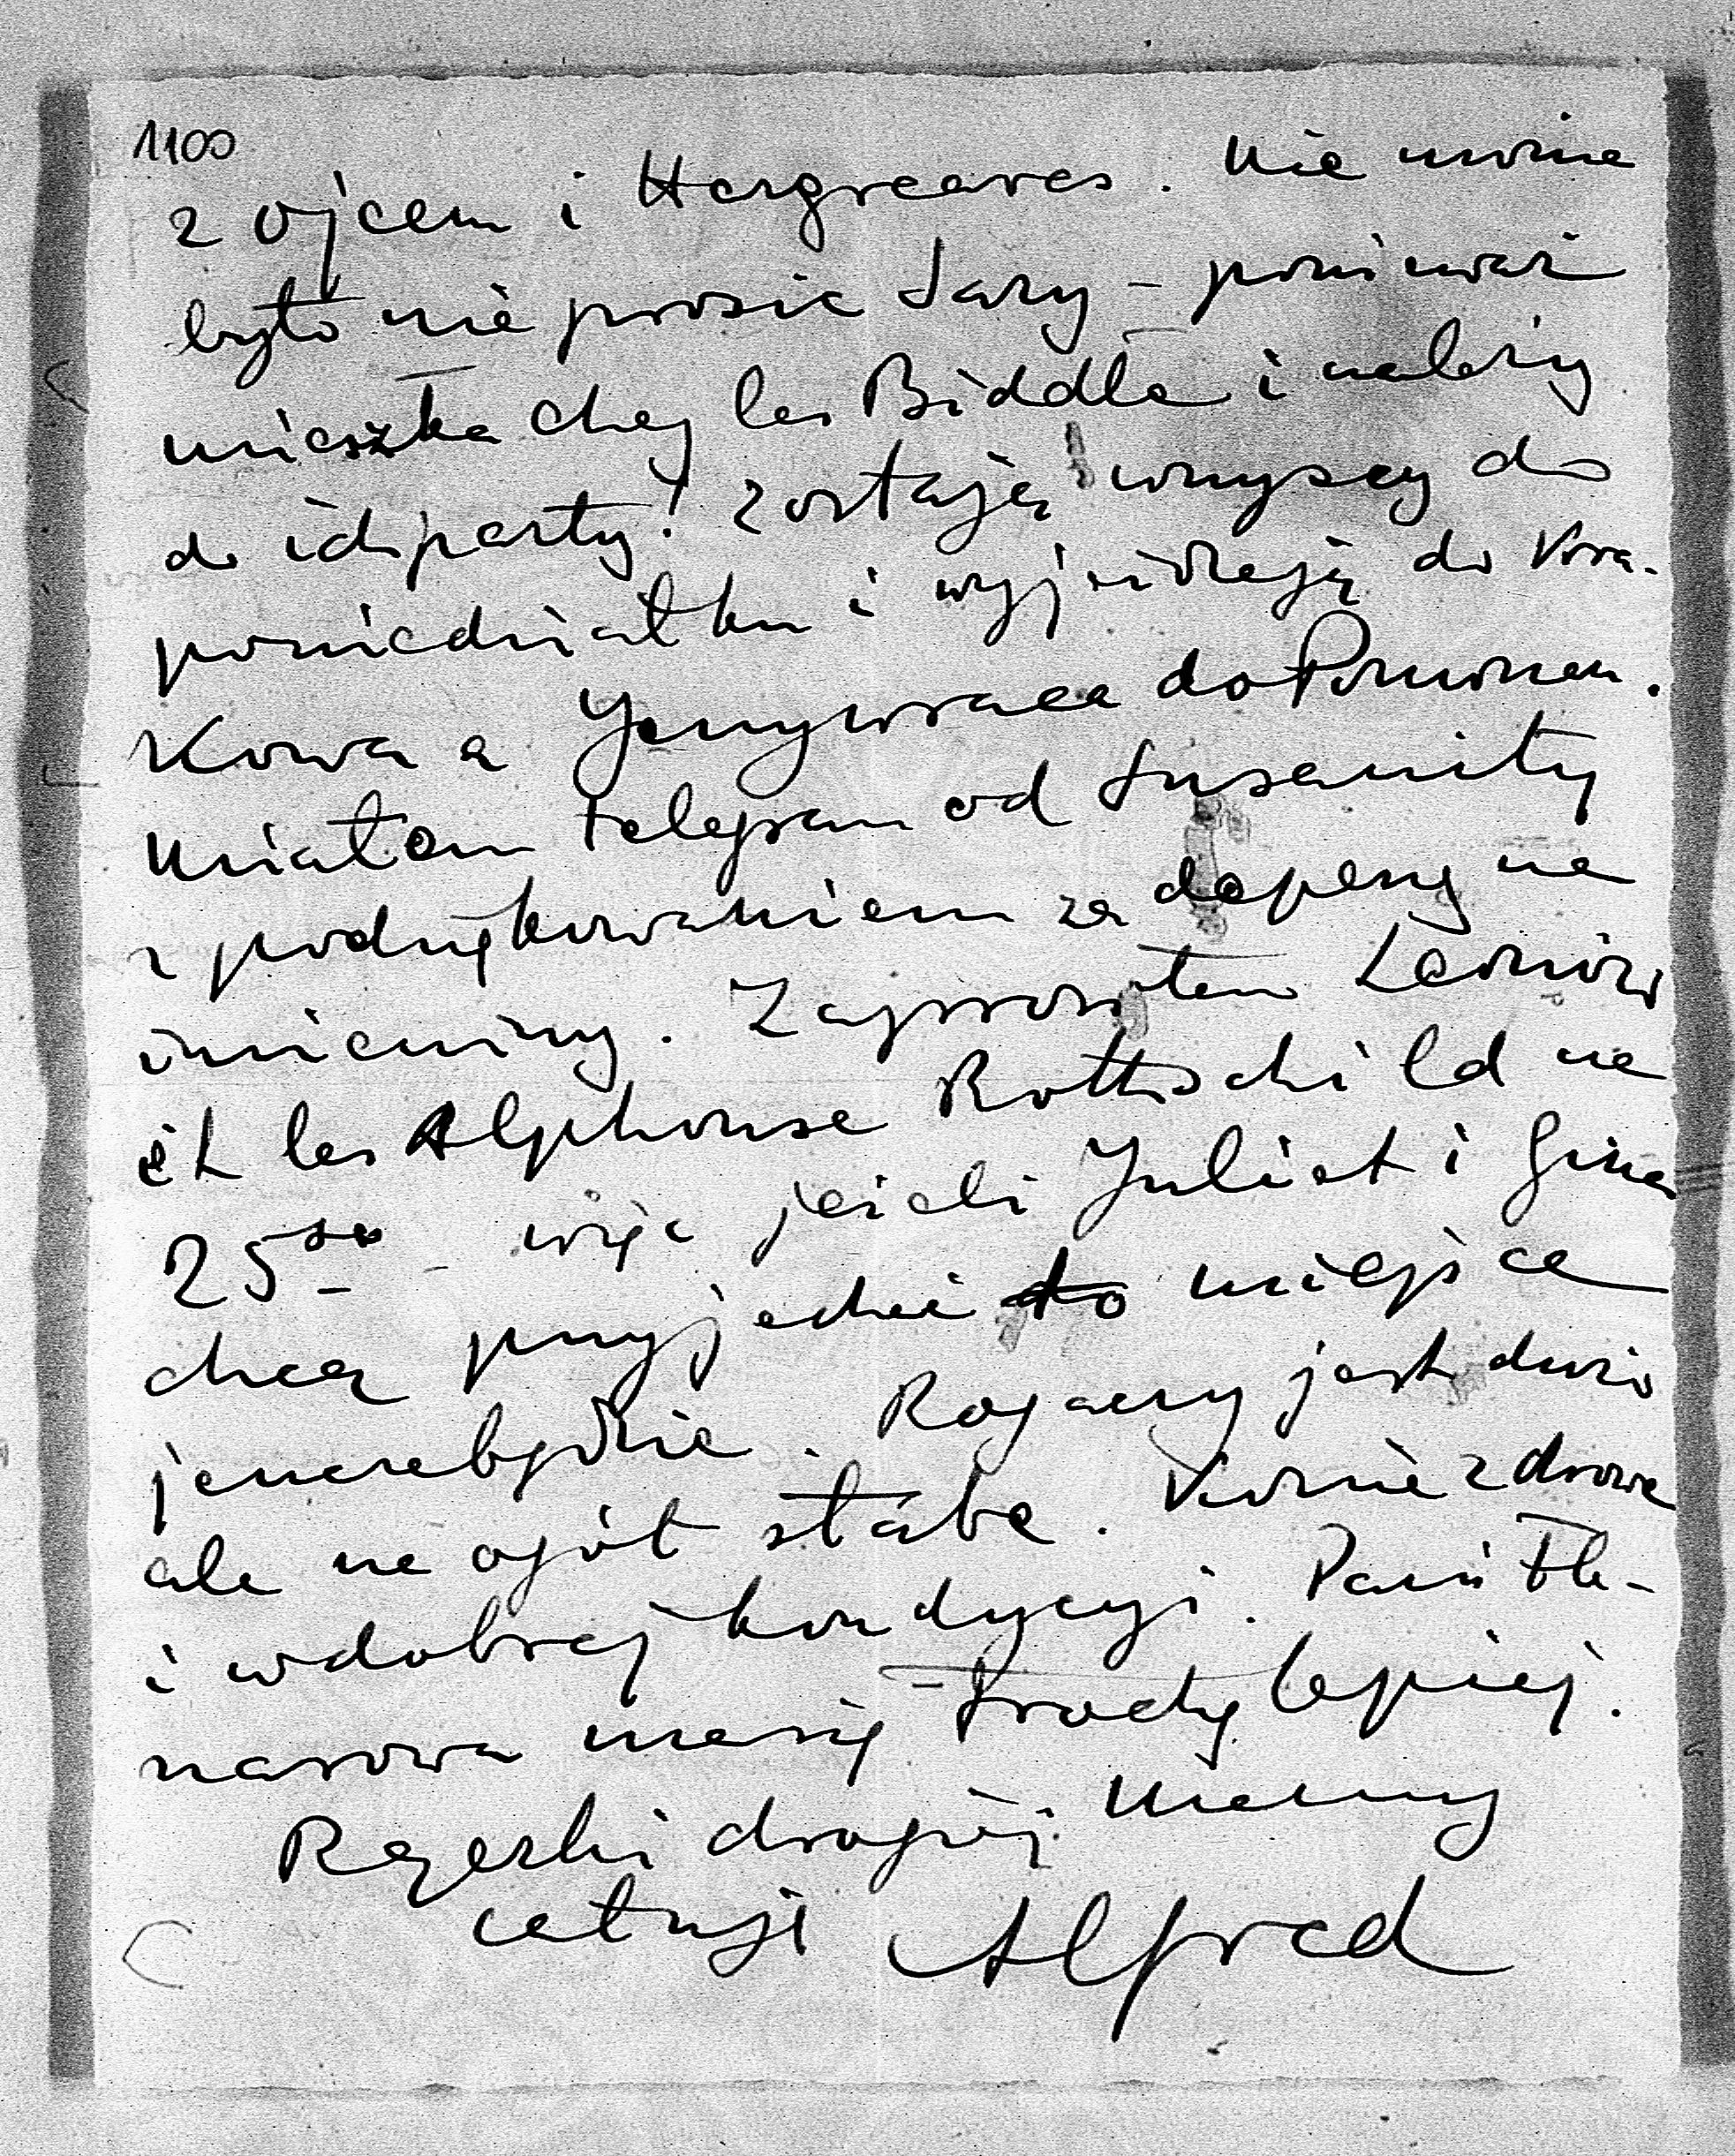 1100
z ojcem i Hargreaves. Nie można
było nie prosić Sary – ponieważ
mieszka chez les Biddle i należy
do ich party! Zostają wszyscy do
poniedziałku i wyjeżdżają do Kra-
kowa a Jerzy wraca do Poznania.
Miałem telegram od
z podziękowaniem za depeszę na
imieniny. Zaprosiłem Leonów
et les Alphonse Rothschild na
25go – więc jeżeli Juliet i Gina
chcą przyjechać to miejsce
jeszcze będzie. Rogaczy jest dużo
ale na ogół słabe. Konie zdrowe
i w dobrej kondycyi. Pani
ma się trochę lepiej.
Rączki drogiej Mamy
całuję Alfred